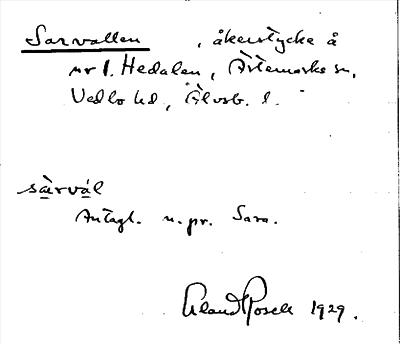 Sarvallen, åkerstycke å
nr 1. Hedalen, Ärtemarks sn,
Vedbo hd, Älvsb. l.
sàrvál
Antagl. n. pr. Sara.
1929.